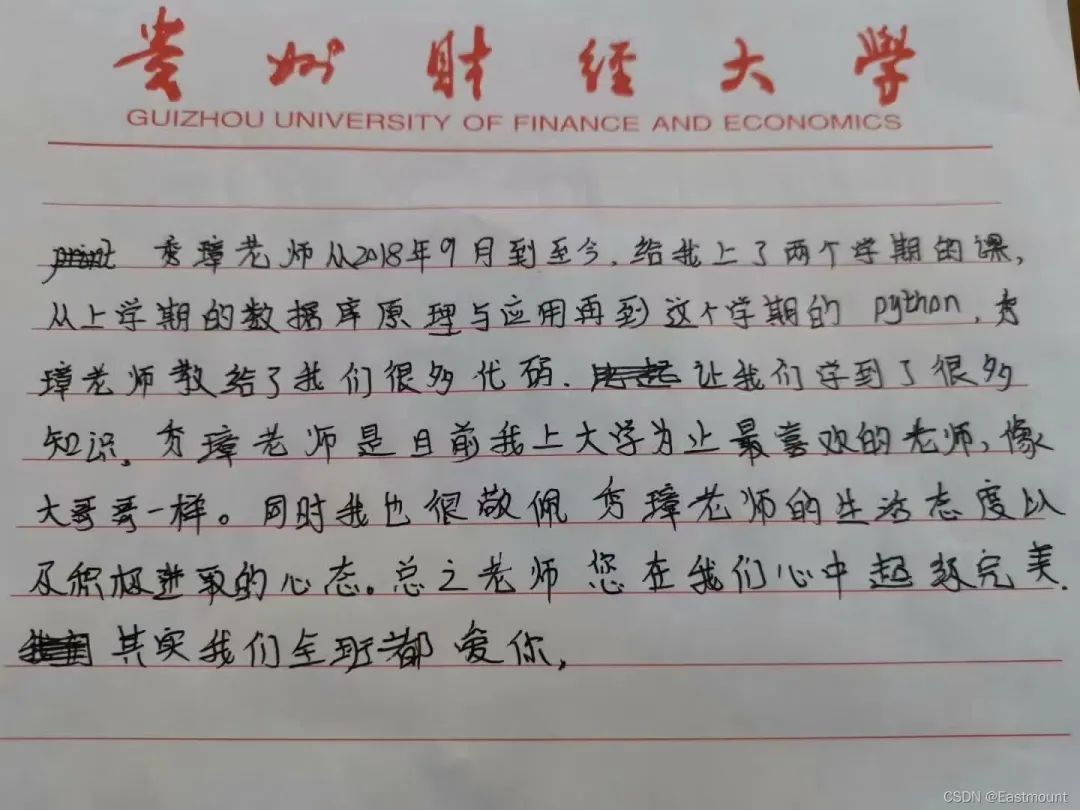 贵州财经大学
GUIZHOU UNIVERSITY OF FINANCE AND ECONOMICS
print 秀璋老师从2018年9月到至今,给我上了两个学期的课,
从上学期的数据库原理与应用再到这个学期的 python,秀
璋老师教给了我们很多代码、让我们学到了很多
知识。秀璋老师是目前我上大学为止最喜欢的老师,像
大哥哥一样。同时我也很敬佩 秀璋老师的生活态度以
及积极进取的心态。总之老师 您在我们心中超级完美.
其实我们全班都 爱你,
CSDN @Eastmount